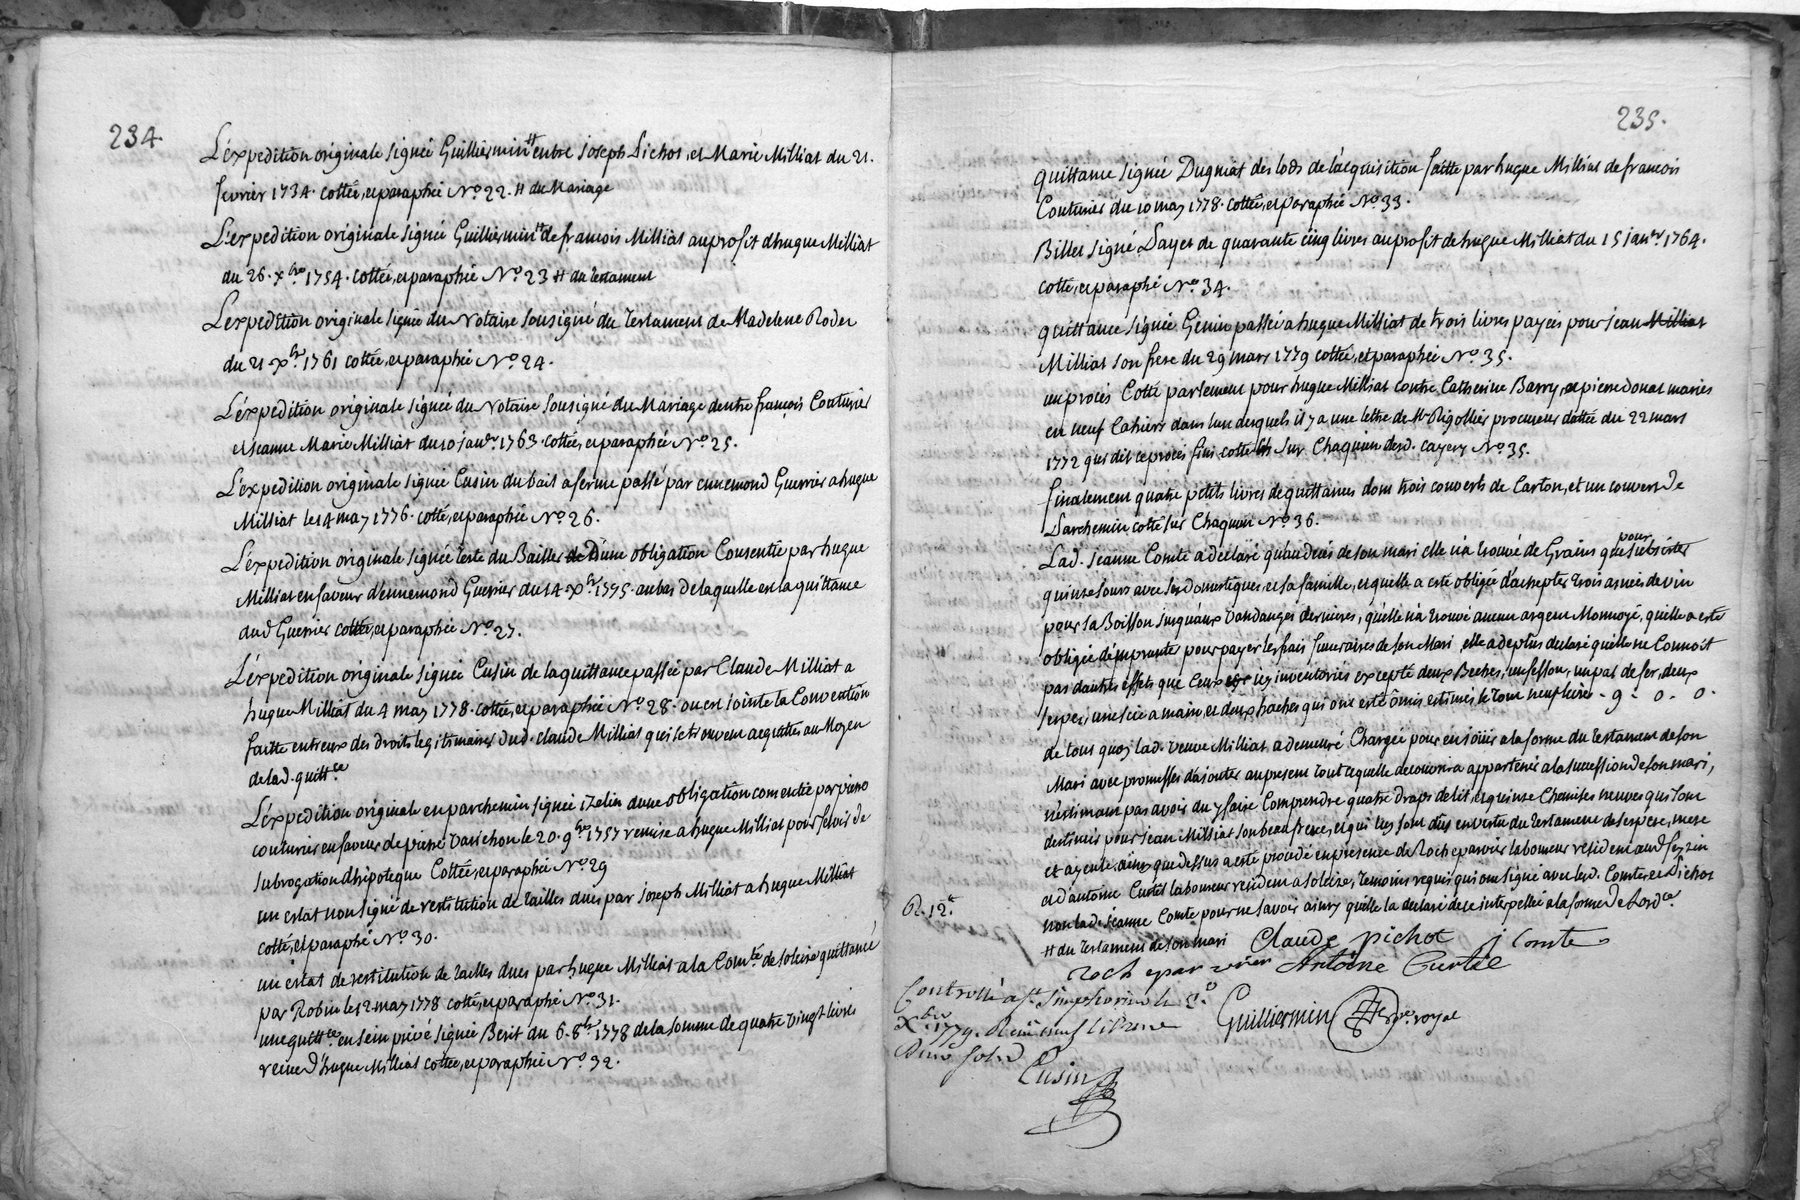 234.
L'expedition originale signée Guilliermin # entre joseph Pichot, et Marie Milliat du 21.
fevrier 1734. cottée, et paraphée N.o 22. # du Mariage
L'expedition originale signée Guilliermin # de francois Milliat au profit d'hugue Milliat
du 26. xbre 1754. cottée, et paraphée N.o 23 # du testament
L'expedition originale signée du Notaire sousigné du testament de Madelene Roder
du 21 xbre 1761 cottée, et paraphée N.o 24.
L'expedition originale signée du Notaire sousigné du Mariage dentre françois Couturier
et jeanne Marie Milliat du 10 janer 1763. cottée, et paraphée N.o 25.
L'expedition originale signée Cusin du bail a ferme passé par ennemond Guerrier a hugue
Milliat le 14 may 1776. cotté, et paraphée N.o 26.
L'expedition originale signée teste du Bailler de D'une obligation Consentie par hugue
Milliat en faveur d'ennemond Guerrier du 14 xbre 1775. au bas de laquelle est la quittance
dud Guerrier cottée, et paraphée N.o 27.
L'expedition originale signée Cusin de la quittance passée par Claude Milliat a
hugue Milliat du 4 may 1778. cottée, et paraphée N.o 28. ou est jointe la Convention
faitte entreux des droits legitimaires dud. claude Milliat qui se trouvent acquittés au Moyen
de lad. quittce
L'expedition originale en parchemin signée izelin dune obligation consentie par pierre
couturier en faveur de pierre Varichon le 20. 9bre 1757 remise a hugue Milliat pour servir de
subrogation dhipoteque Cottée, et paraphée N.o 29
un estat non signé de restitution de tailles dues par joseph Milliat a hugue Milliat
cotté, et paraphé N.o 30.
un estat de restitution de tailles dues par hugue Milliat a la Comté de soleise quittancé
par Robin le 12 may 1778 cotté, et paraphé N.o 31.
une quittce en sein privé signée Berit du 6. 8bre 1778 de la somme de quatre vingt livres
receue d'hugue Milliat cottée, et paraphée N.o 32.
235.
quittance signée Dugniat des lods de l'acquisition faitte par hugue Milliat de francois
Couturier du 10 may 1778. cottée, et paraphée N.o 33.
Billet signé Payet de quarante cinq livres au profit de hugue Milliat du 15 janer 1764.
cotté, et paraphé N.o 34.
quittance signée Genin passée a hugue Milliat de trois livres payées pour jean Milliat
Milliat son frere du 29 mars 1779 cottée, et paraphée N.o 35.
un procés Cotté parlement pour hugue Milliat contre Catherine Barry, et pierre donat mariés
en neuf Cahiers dans l'un desquels il y a une lettre de Mr Rigollier procureur dattée du 22 mars
1772 qui dit ce procés fini cotté sur Chaquun desd. cayers N.o 35.
finalement quatre petits livres de quittances dont trois couverts de Carton, et un couvert de
Parchemin cotté sur Chaquun N.o 36.
Lad. jeanne Comte a declaré qu'au decés de son mari elle n'a trouvé de Grains que pour subsister
quinse jours avec ses domestiques, et sa famille, et quelle a esté obligée d'achepter trois asnées de vin
pour sa Boisson jusqu'aux Vandanges dernieres, qu'elle n'a trouvé aucun argent Monnoyé, quelle a esté
obligée d'emprunter pour payer les frais funeraires de son Mari, elle a de plus declaré quelle ne Connoit
pas d'autres effets que Ceux icy inventoriés excepté deux Beches, un fesson, un pal de fer, deux
serpes, une scie a main, et deux haches qui ont esté omis estimés le tout neuf livres - 9 - 0 - 0.
de tout quoy lad. veuve Milliat a demeuré Chargée pour en jouir a la forme du testament de son
Mari avec promesses d'ajouter au present tout ce quelle decouvrira appartenir a la succession de son mari,
n'estimant pas avoir du y faire Comprendre quatre draps de lit, et quinse Chemises neuves qui sont
destinés pour jean Milliat son beau frere, et qui luy sont dus en vertu du testament de ses pere, mere
et ayeule ainsy que dessus a esté procédé en presence de Roch eparvier laboureur resident aud feyzin
et d'antoine Curtil laboureur resident a soleise, temoins requis qui ont signé avec lesd. Comte, et Pichot
non lad. jeanne Comte pour ne savoir ainsy quelle la declaré de ce interpellée a la forme de Lordce.
# du testament de son mari
R. 12 s
Claude pichot j Comte
roch epar vier Antoine Curtil
Controllé a st simphorien le 2.
xbre 1779. Recu neuf livres
dix sols
Cusin
Guilliermin nore royal